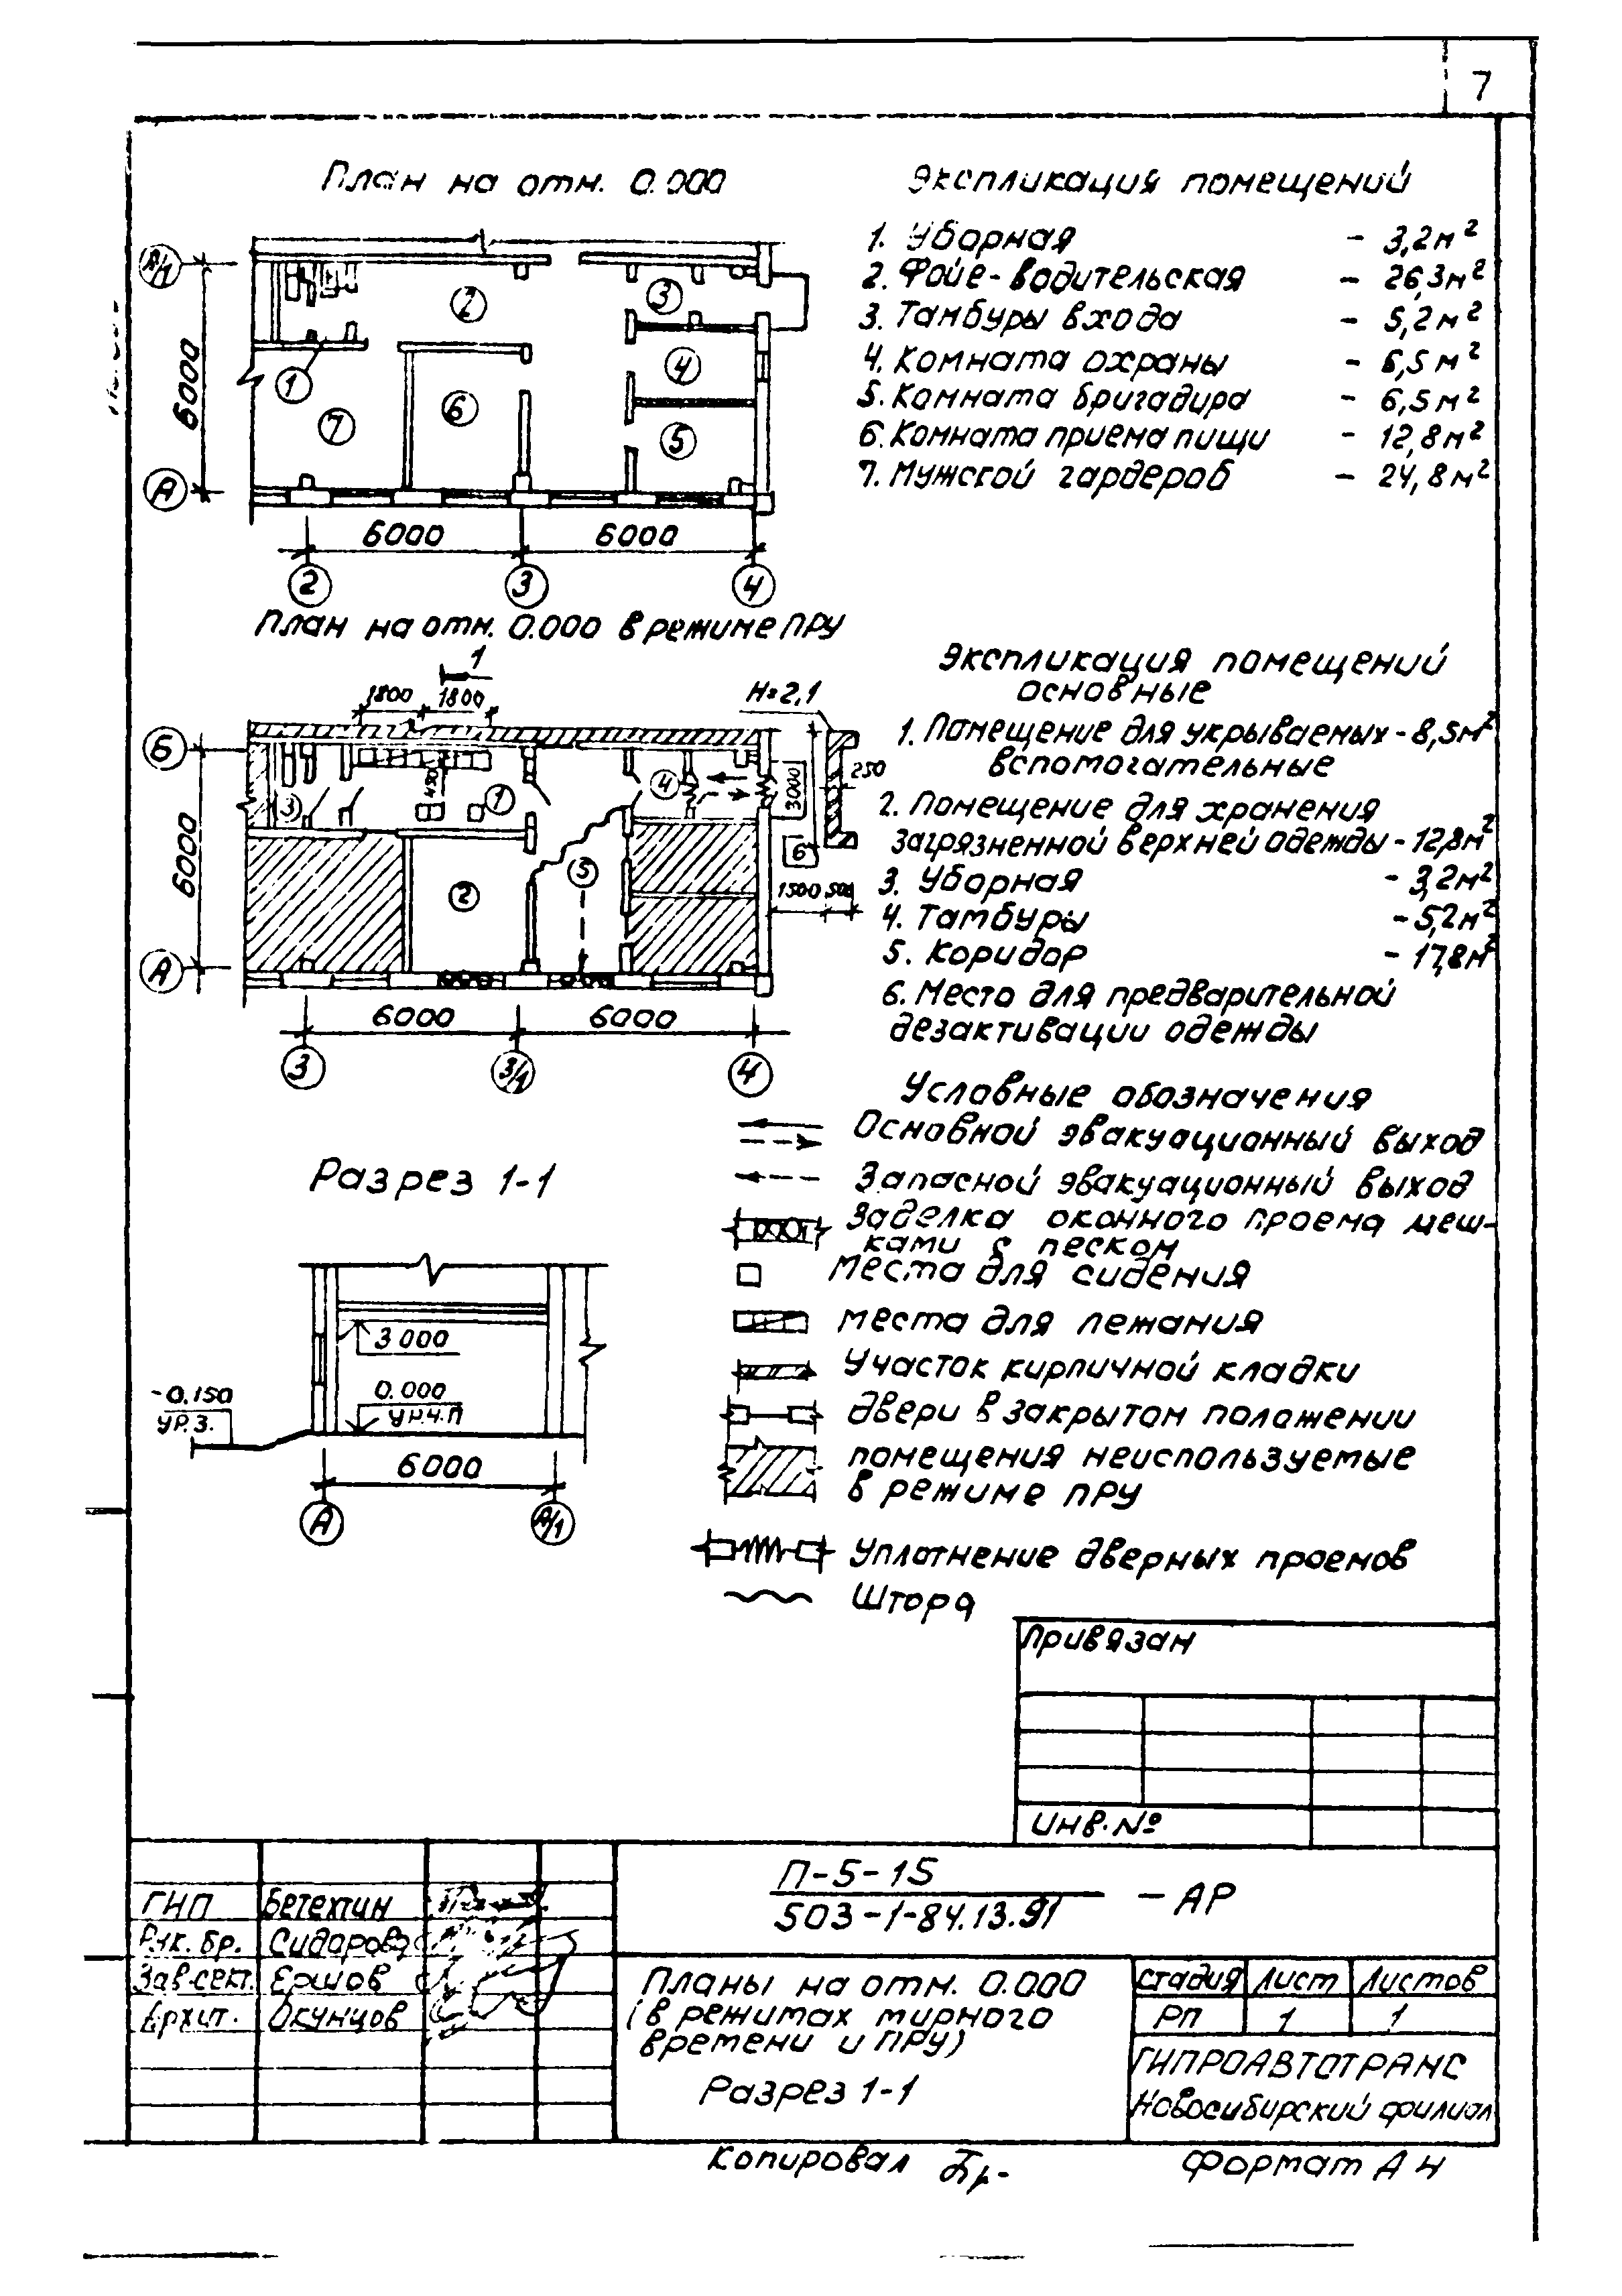 7
План на отм. 0.000
А/1
6000
А
1
2
3
4
5
6
7
6000
6000
2
3
4
Экспликация помещений
1. Уборная - 3,2м²
2. Фойе-водительская - 26,3м²
3. Тамбуры входа - 5,2м²
4. Комната охраны - 6,5м²
5. Комната бригадира - 6,5м²
6. Комната приема пищи - 12,8м²
7. Мужской гардероб - 24,8м²
План на отм. 0.000 в режиме ПРУ
1
1800
1800
Н=2,1
Б
6000
А
3
1
4
2
5
6
3000
250
1500
500
6000
6000
3
3/1
4
Экспликация помещений
основные
1. Помещение для укрываемых - 8,5м²
вспомогательные
2. Помещение для хранения
загрязненной верхней одежды - 12,8м²
3. Уборная - 3,2м²
4. Тамбуры - 5,2м²
5. Коридор - 17,8м²
6. Место для предварительной
дезактивации одежды
Условные обозначения
Основной эвакуационный выход
Запасной эвакуационный выход
Заделка оконного проема меш-
ками с песком
Места для сидения
места для лежания
Участок кирпичной кладки
двери в закрытом положении
помещения неиспользуемые
в режиме ПРУ
Уплотнение дверных проемов
Штора
Разрез 1-1
3 000
0.000
ур.ч.п
-0.150
ур.з.
6000
А
А/1
Привязан
Инв.№
ГИП Бетехтин
Рук. бр. Сидорова
Зав.сект. Ершов
Архит. Окунцов
П-5-15
503-1-84.13.91 - АР
Планы на отм. 0.000
(в режимах мирного
времени и ПРУ)
Разрез 1-1
Стадия Лист Листов
РП 1 1
ГИПРОАВТОТРАНС
Новосибирский филиал
Копировал
Формат А4